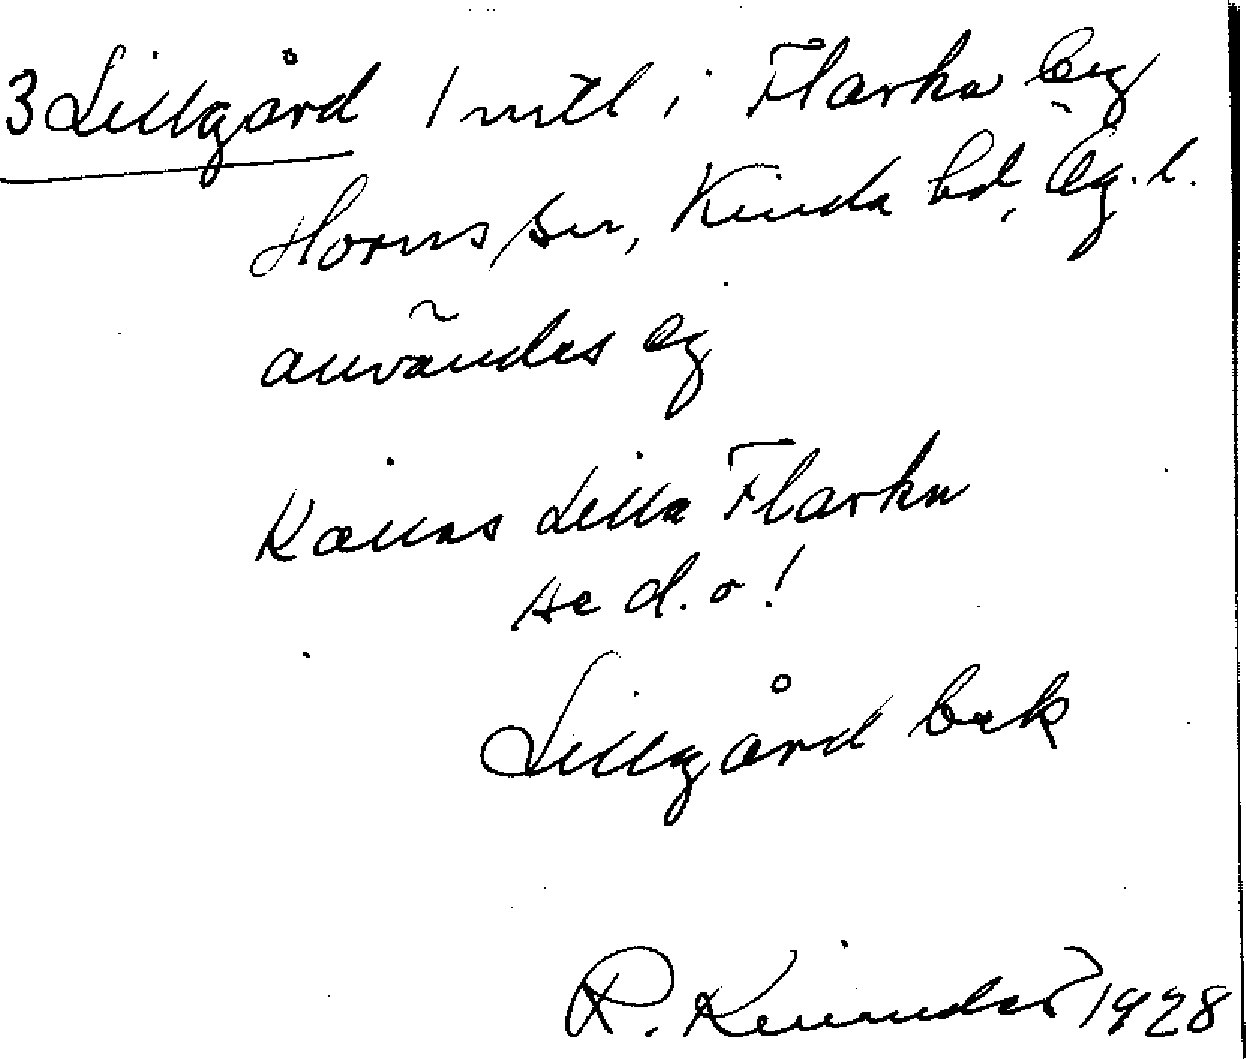 3 Lillgård 1 mtl i Flarka by
Horns sn, Kinda hd, Ög. l.
användes ej
Kallas Lilla Flarka
se d. o!
Lillgård bek
R. Kinander 1928